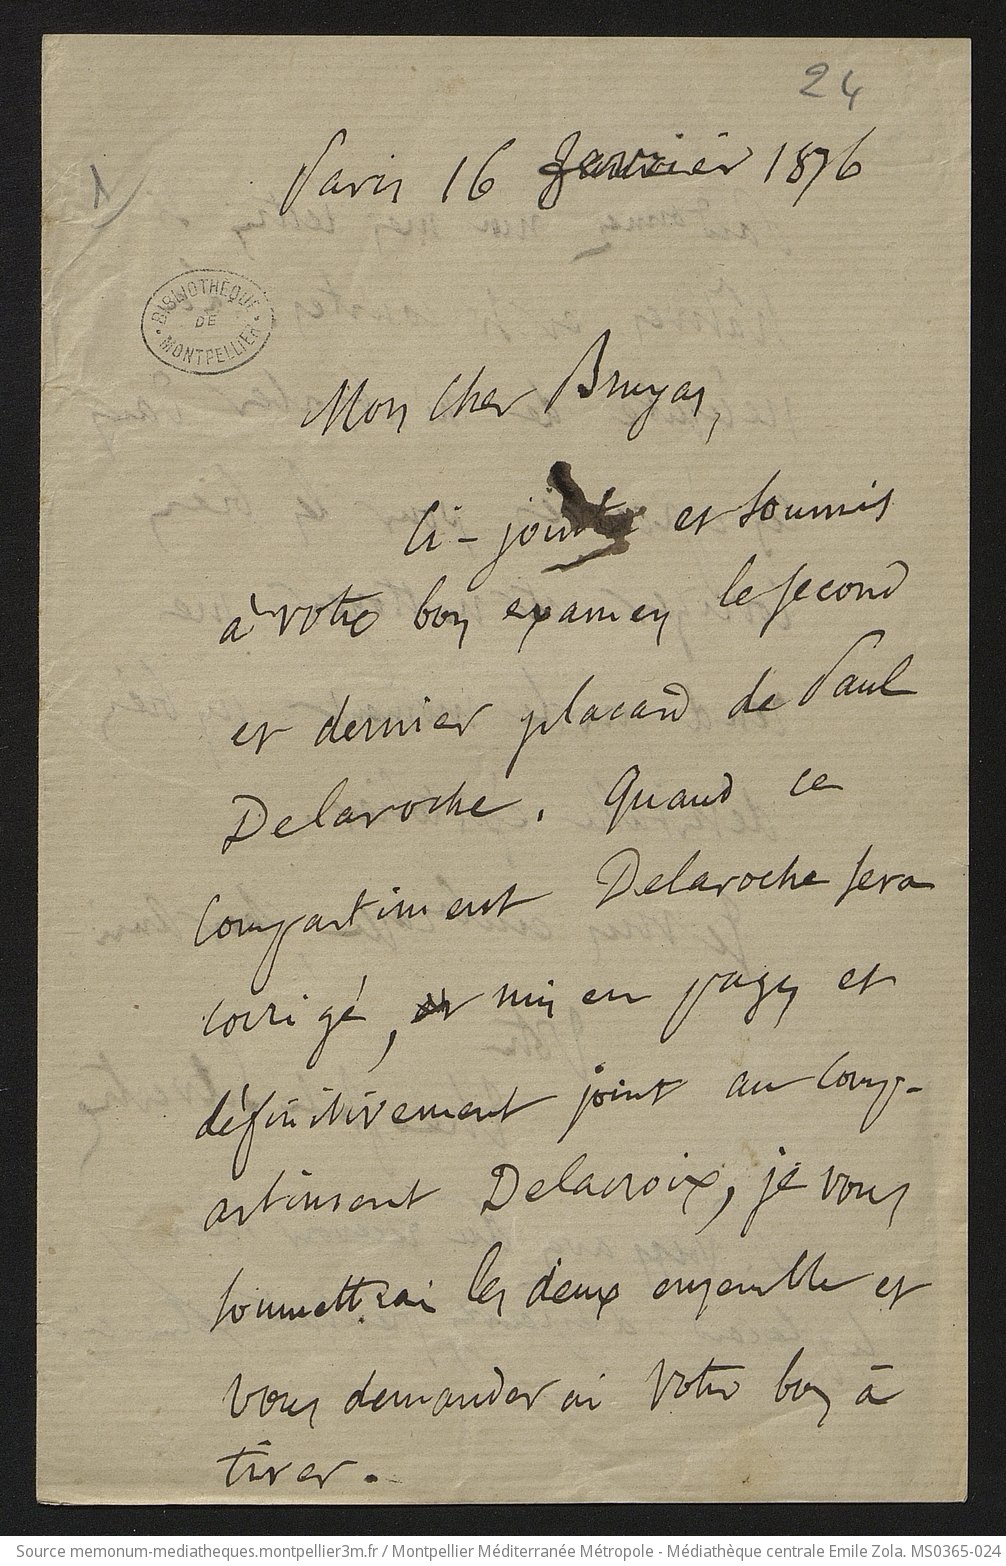 24
1
Paris 16 Janvier 1876
BIBLIOTHEQUE DE MONTPELLIER
Mon Cher Bruyas,
Ci-joint et soumis
à votre bon examen le second
et dernier placard de Paul
Delaroche. Quand ce
compartiment Delaroche sera
corrigé, mis en pages et
définitivement joint au comp-
artiment Delacroix, je vous
soumettrai les deux ensemble et
vous demanderai votre bon à
tirer.
Source memonum-mediatheques.montpellier3m.fr / Montpellier Méditerranée Métropole - Médiathèque centrale Emile Zola. MS0365-024